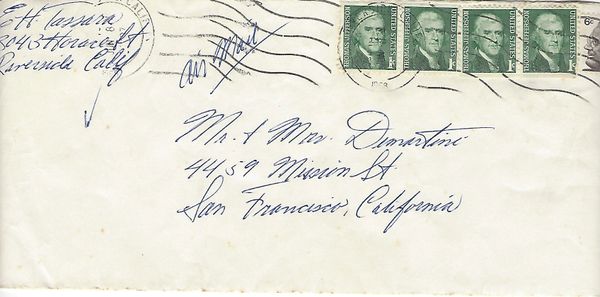 E H Tassara
3043 Horace St
Riverside Calif
air mail
Mr. & Mrs. Demartini
4459 Mission St.
San Francisco, California
THOMAS JEFFERSON
UNITED STATES
1¢
THOMAS JEFFERSON
UNITED STATES
1¢
THOMAS JEFFERSON
UNITED STATES
1¢
THOMAS JEFFERSON
UNITED STATES
1¢
6¢
CALIF.
1968